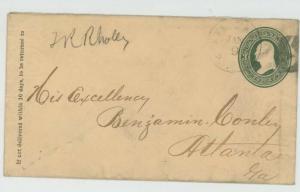 If not delivered within 10 days, to be returned to
His Excellency
Benjamin Conley
Atlanta
Ga